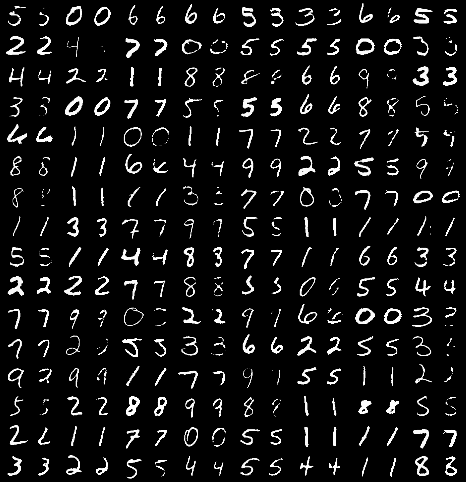 5 5 0 0 6 6 6 6 5 3 3 3 6 6 5 5
2 2 4 7 7 0 0 5 5 5 5 0 0 3 3
4 4 2 2 1 1 8 8 8 8 6 6 9 3 3
3 3 0 0 7 7 5 5 5 5 6 6 8 8 5 5
6 6 1 1 0 0 1 1 7 7 2 2 7 7 5 4
8 8 1 1 6 6 4 4 9 9 2 2 5 5 9 9
8 1 1 1 1 3 3 7 7 0 0 7 7 0 0
1 1 3 3 7 7 9 9 5 5 1 1 1 1 1 1
5 5 1 1 4 4 8 3 7 7 1 1 6 6 3 3
2 2 2 2 7 7 8 8 3 3 0 6 5 5 4 4
7 7 9 9 0 0 2 2 9 9 6 6 0 0 3 3
7 7 2 5 5 3 3 6 6 2 2 5 5 3
9 2 9 9 1 1 7 7 9 5 5 1 1 2
5 5 2 2 8 8 9 9 8 8 1 1 8 8 5 5
2 2 1 1 7 7 0 0 5 5 1 1 1 1 7 7
3 3 2 2 5 5 4 4 5 5 4 4 1 1 8 8